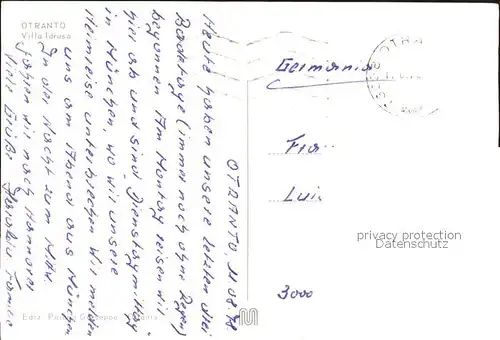 OTRANTO
Villa Idrusa
OTRANTO, 11.08.78
Heute haben unsere letzten drei
Badetage (immer noch ohne Regen)
begonnen. Am Montag reisen wir
hier ab und sind Dienstagmittag
in München, wo wir unsere
Heimreise unterbrechen. Wir melden
uns am Abend aus München.
In der Nacht zum Mittw.
fahren wir nach Hannover
Viele Grüße
Germania
Fra
Lui
3000
OTRA
privacy protection
Datenschutz
Ediz.